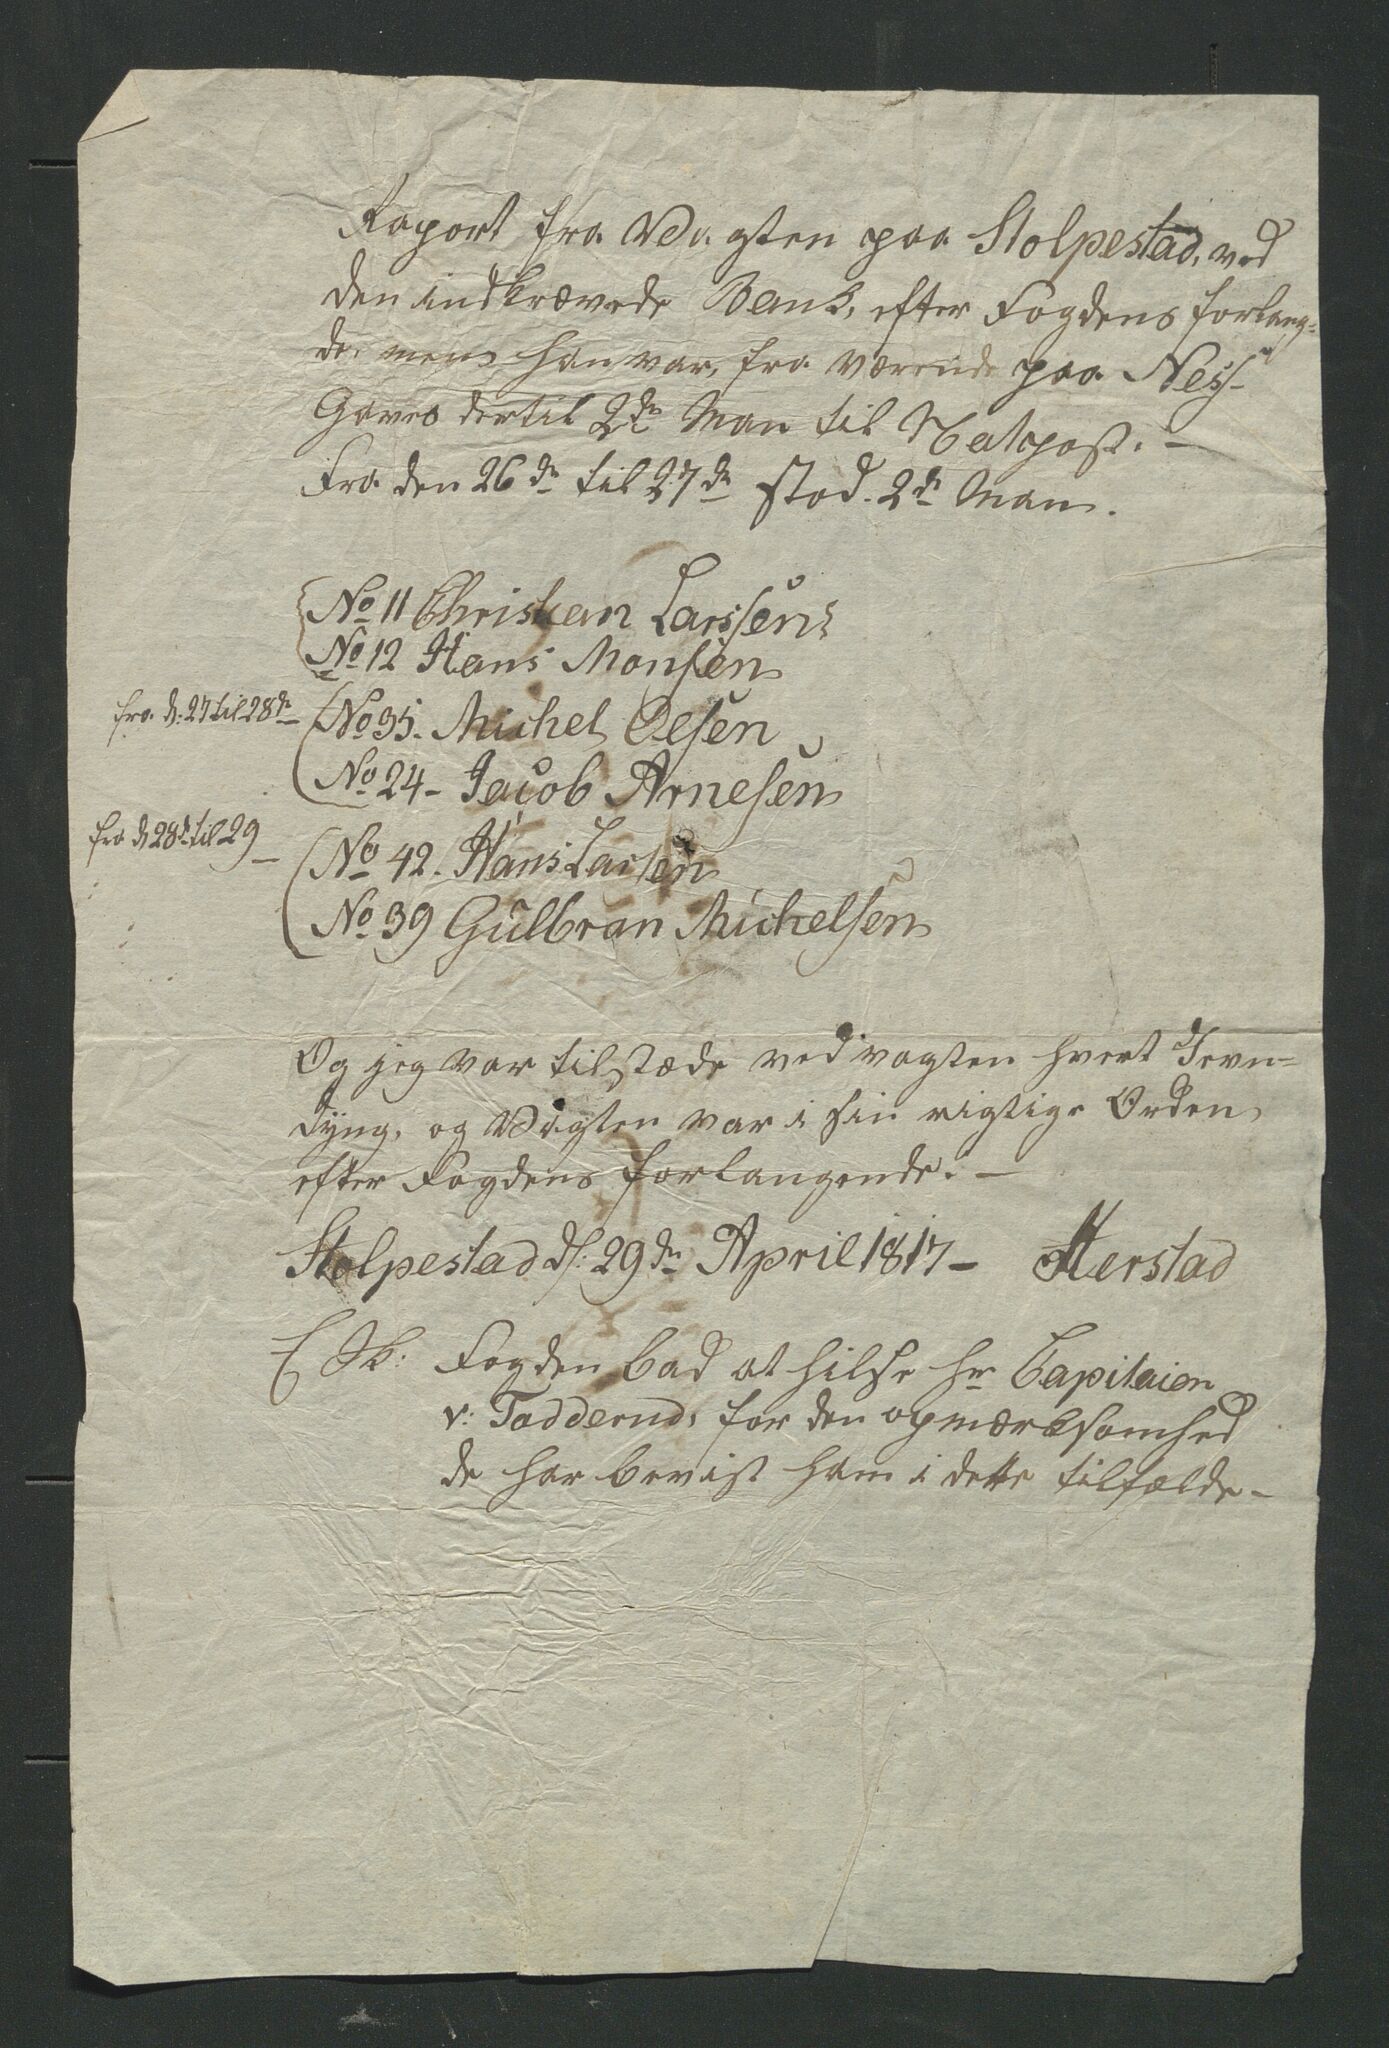 Raport fra Vagten paa Stolpestad, ved
den indkrævede Bank, efter Fogdens forlang-
de, mens han var, fra værende paa Ness-
Gaves dertil 2de Man til Natpost. —
Fra den 26de til 27de stod. 2de Man.
No 11 Christian Larssen,
No 12 Hans Monsen
fra d: 27 til 28de No 35. Michel Olsen
No 24 - Jacob Arnesen
fra d 28de til 29 No 42. Hans Larsen
No 39 Gulbran Michelsen
Og jeg var tilstæde ved vagten hvert
og Vagten var i sin rigtige Orden
efter Fogdens forlangende. —
Stolpestad d: 29de April 1817 — Herstad
Fogden bad at hilse hr Capitaien
v: for den opmærksomhed
de har bevist ham i dette tilfælde —